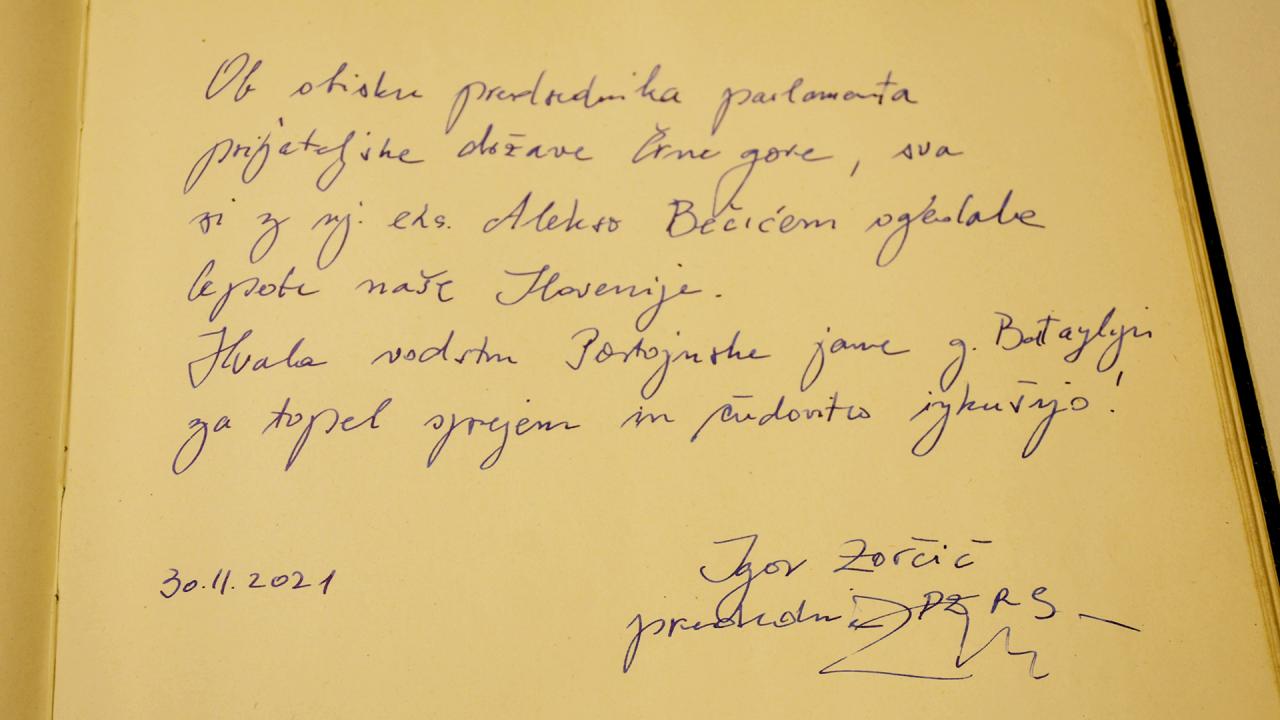 Ob obisku predsednika parlamenta
prijateljske države Črne gore, sva
si z nj. eks. Alekso Bečićem ogledala
lepote naše Slovenije.
Hvala vodstvu Postojnske jame g. Batagelju
za topel sprejem in čudovito izkušnjo!
30.11.2021
Igor Zorčič
predsednik DZ RS